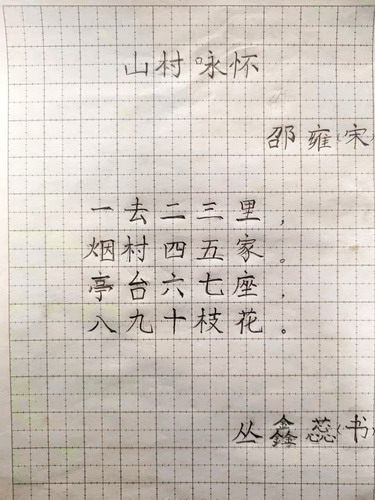 山村咏怀
邵雍(宋
一去二三里，
烟村四五家。
亭台六七座，
八九十枝花。
丛鑫蕊(书